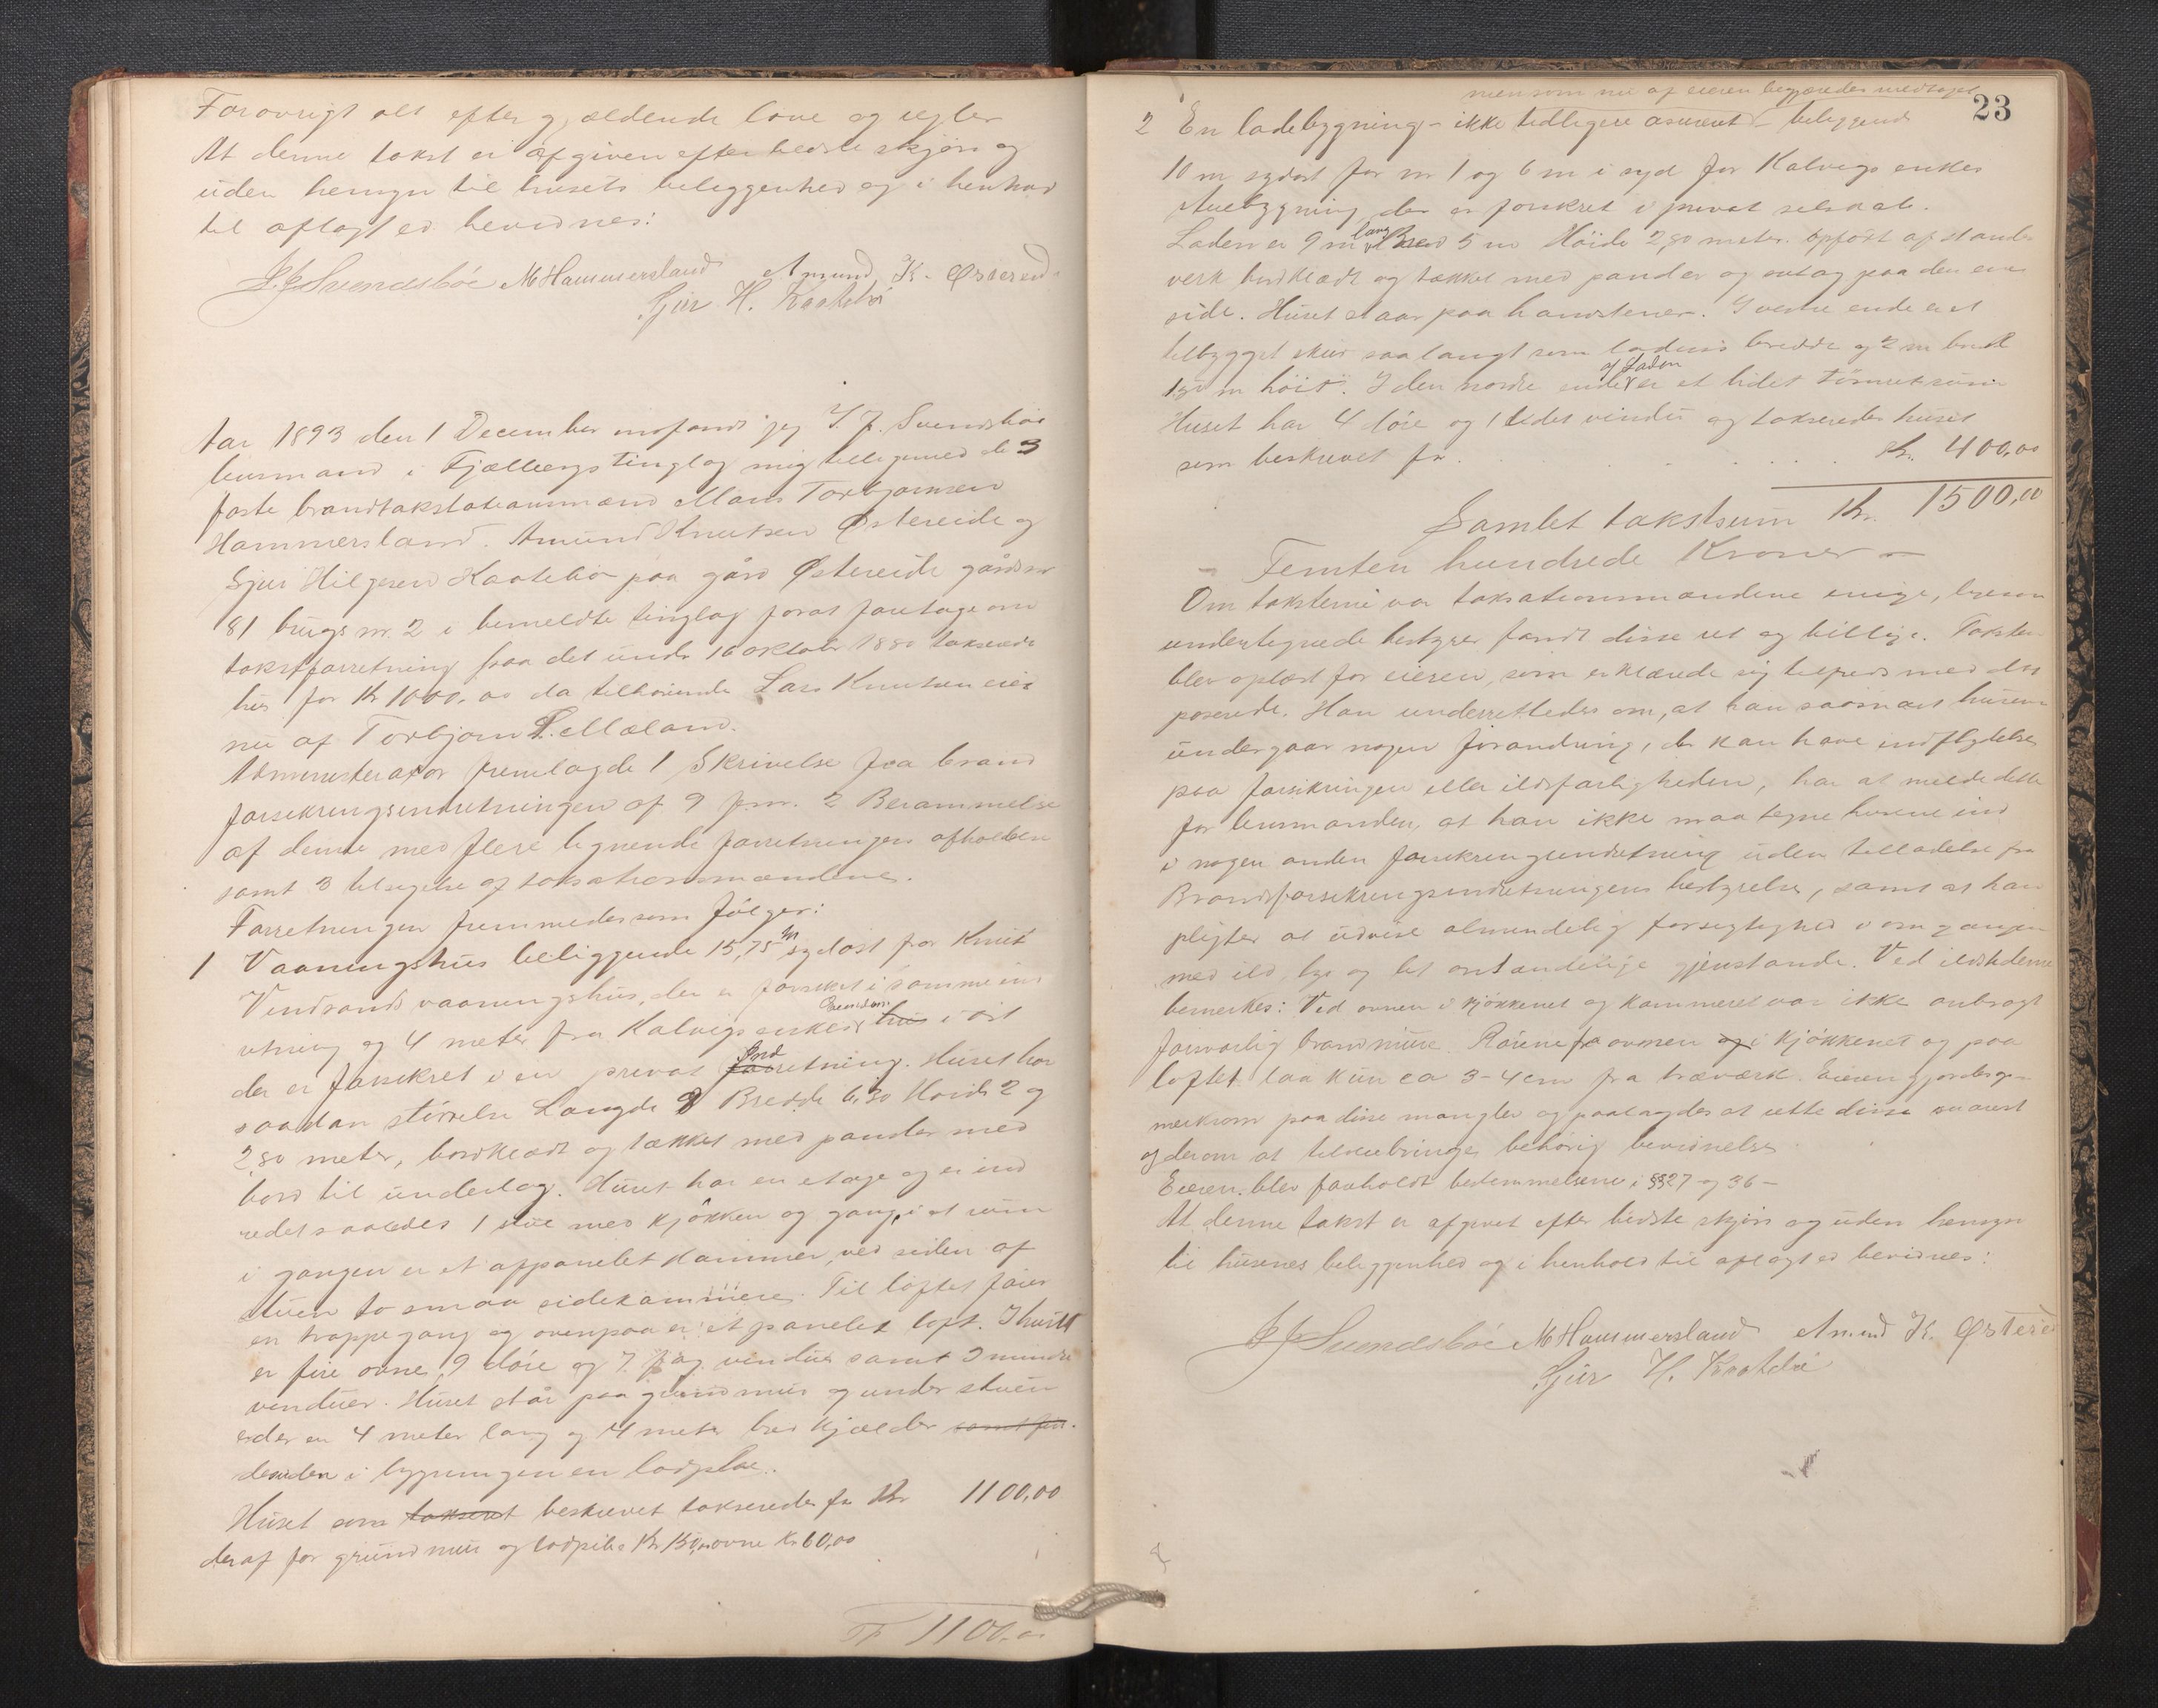 Forøvrigt alt efter gjældende love og regler
At denne takst er afgiven efter bedste skjøn og
uden hensyn til husets beliggenhed og i henhold
til aflagt ed bevidnes:
J.J. Svendsbøe M Hammersland Amund K. Østereid
Sjur H. Kaatebø
Aar 1893 den 1 December indfandt jeg J. J. Svendsbøe
lensmand i Fjælbergs tinglag mig tilligemed de 3
faste brandtakstationsmænd Mons Torbjørnsen
Hammersland. Amund Knutsen Østereide og
Sjur Hilgesen Kaatebø paa gård Østereide gårdsnr
81 brugs nr. 2 i bemeldte tinglag forat foretage om
takstforretning paa det under 16 oktober 1880 takserede
hus for Kr 1000.00 da tilhørende Lars Knutsen eies
nu af Torbjørn L. Mæland.
Administrator fremlagde 1 Skrivelse fra brand
forsikringsindretningen af 9 f.m. 2 Berammelse
af denne med flere lignende forretningers afholdelse
samt 3 tilsigelse af taksationsmændene.
Forretningen fremmedes som følger:
1 Vaaningshus beliggende 15,75 m sydøst for Knut
Vindsands vaaningshus, der er forsikret i samme ind
retning og 4 meter fra Kalvigs enkes hus i øst
der er forsikret i en privat Indretning. Huset har
saadan størrelse Længde 8 Bredde 6.30 Høide 2 og
2,80 meter, bordklædt og tækket med pander med
bord til underlag. Huset har en etage og er ind
redet saaledes 1 stue med kjøkken og gang, i et rum
i gangen er et oppanelet kammer, ved siden af
stuen to smaa sidekammere. Til loftet fører
en trappegang og ovenpaa er et panelet loft. I huset
er fire ovne, 9 døre og 7 fag vinduer samt 3 mindre
vinduer. Huset står paa grundmur og under stuen
er der en 4 meter lang og 4 meter bred kjælder samt fin.
desuden i bygningen en lodpibe.
Huset som taksert beskrevet takseredes for Kr 1100,00
deraf for grundmur og lodpibe Kr 150,00 ovne Kr 60,00
Tr 1100.00
23
men som nu af eieren begjæredes medtaget
2 En ladebygning - ikke tidligere asureret - beliggende
10 m sydøst for nr 1 og 6 m i syd for Kalvigs enkes
Auebygning der er forsikret i privat selskab.
Laden er 9 m lang Bred 5 m Høide 2,80 meter. Opført af stander
verk bordklædt og tækket med pander og outag paa den ene
side. Huset staar paa handstener. I vestre ende er et
tilbygget skur saa langt som ladens bredde og 2 m bred
1,50 m høit. I den nordre ende af Laden er et lidet tømmerrum
Huset har 4 døre og 1 lidet vindu og takseredes huset
som beskrevet for . . . . . Kr. 400,00
Samlet takstsum Kr. 1500,00
Femten hundrede Kroner -
Om taksterne var taksationsmændene enige, ligesom
undertegnede bestyrer fandt disse ret og billige. Taksten
blev oplæst for eieren, som erklærede sig tilfreds med det
passerede. Han underrettedes om, at han saasnart husene
undergaar nogen forandring, der kan have indflydelse
paa forsikringen eller ildsfarligheden, har at melde dette
for lensmanden, at han ikke maa tegne husene ind
i nogen anden forsikringsindretning uden tilladelse fra
Brandforsikringsindretningens bestyrelse, samt at han
pligter at udvise almindelig forsigtighed i omgangen
med ild, lys og let antændelige gjenstande. Ved ildstederne
bemerkes: Ved ovnen i kjøkkenet og kammeret var ikke anbragt
forsvarlig brandmure. Rørene fra ovnen og i kjøkkenet og paa
loftet laa kun ca 3-4 cm fra træværk. Eieren gjordes op-
merksom paa disse mangler og paalagdes at rette disse snarest
og derom at tilveiebringe behørig bevidnelse
Eieren blev foreholdt bestemmelserne i §§27 og 36 -
At denne takst er afgivet efter bedste skjøn og uden hensyn
til husenes beliggenhed og i henhold til aflagt ed bevidnes:
J.J. Svendsbøe M Hammersland Amund K. Østereid
Sjur H. Kaatebø